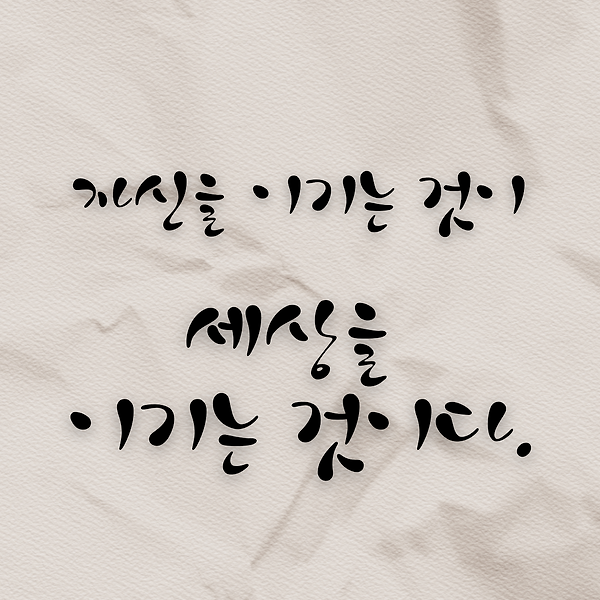 자신을 이기는 것이
세상을
이기는 것이다.